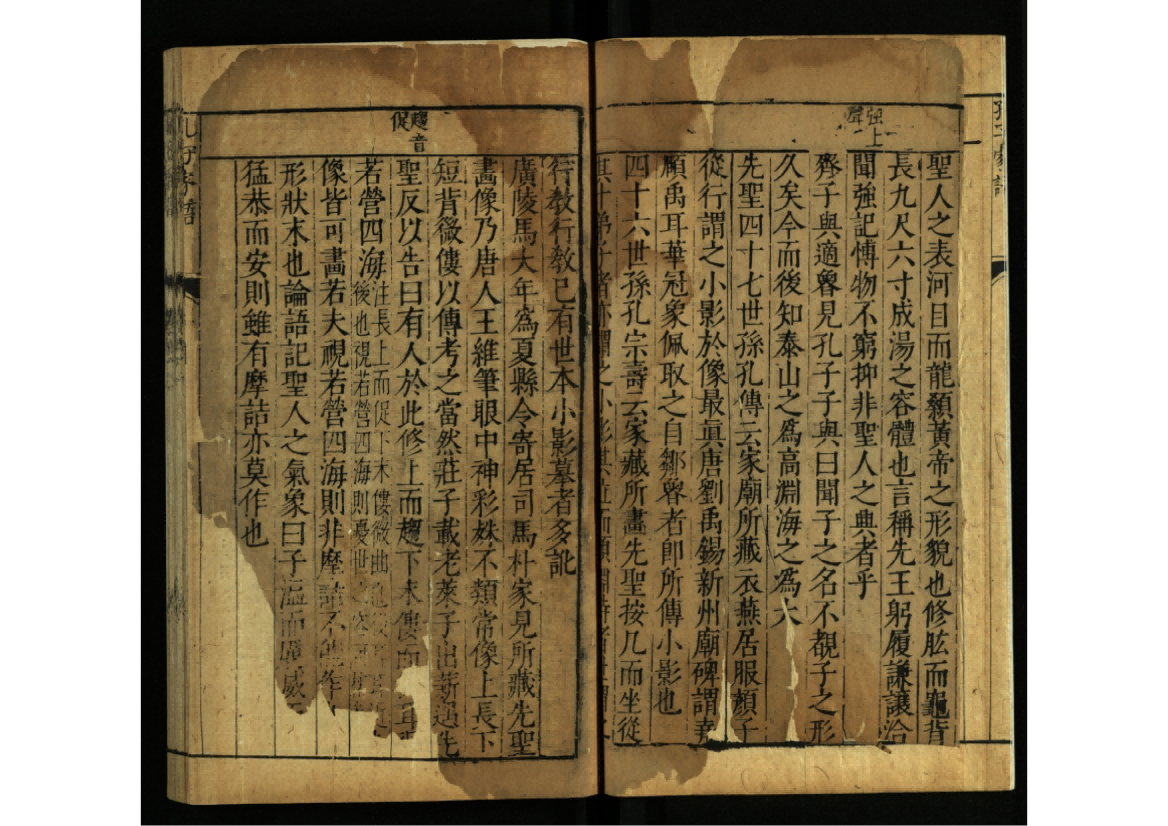 強上
聲
聖人之表河目而龍顙黃帝之形貌也修肱而龜背
長九尺六寸成湯之容體也言稱先王躬履謙讓洽
聞強記愽物不窮抑非聖人之興者乎
齊子與適魯見孔子子與曰聞子之名不覩子之形
久矣今而後知泰山之為高淵海之為大
先聖四十七世孫孔傳云家廟所藏衣燕居服顏子
從行謂之小影於像最真唐劉禹錫新州廟碑謂堯
顧禹耳華冠象佩取之自鄒魯者即所傳小影也
四十六世孫孔宗壽云家藏所畫先聖按几而坐從
其十弟子者亦謂之小影其立而顏淵侍者
行教行教已有世本小影摹者多訛
廣陵馬大年為夏縣令寄居司馬朴家見所藏先聖
畫像乃唐人王維筆眼中神彩姝不類常像上長下
趨音
促
短背微僂以傳考之當然莊子載老萊子出薪遇先
聖反以告曰有人於此修上而趨下末僂而
若營四海注長上而促下末僂微曲
後也視若營四海則憂世
像皆可畫若夫視若營四海則非摩詰不能作
形狀末也論語記聖人之氣象曰子溫而厲威
猛恭而安則雖有摩詰亦莫作也
孔子家語